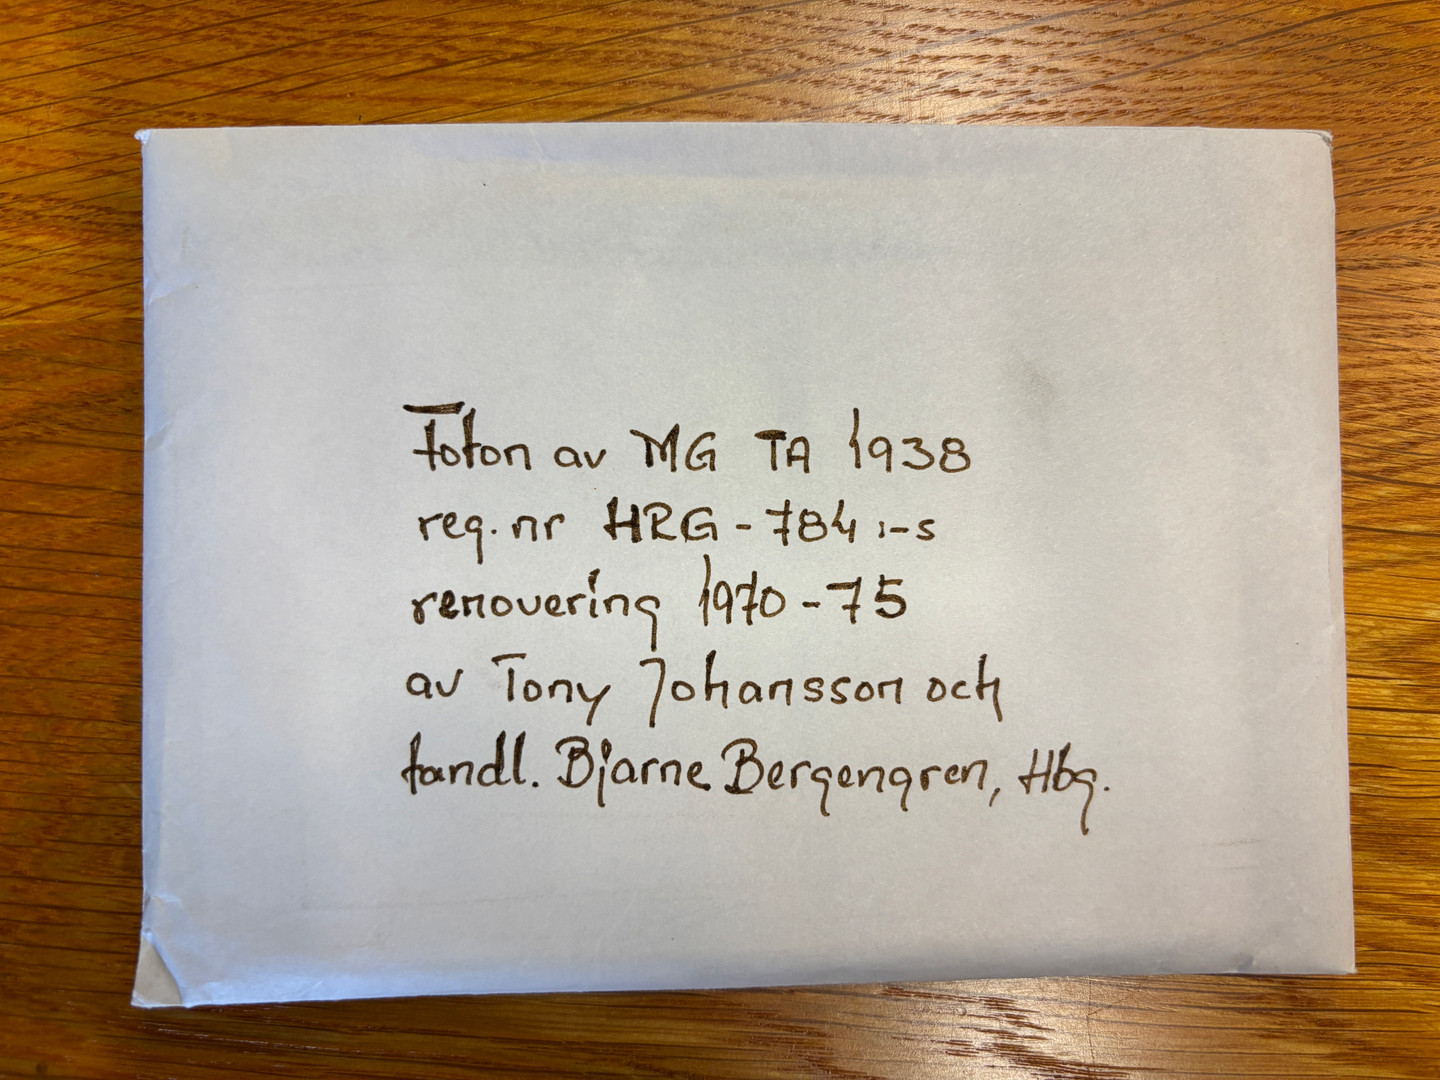 Foton av MG TA 1938
reg. nr HRG-784:-s
renovering 1970-75
av Tony Johansson och
tandl. Bjarne Bergengren, Hbg.